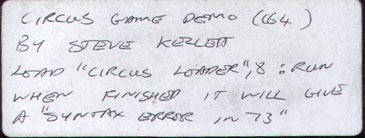 CIRCUS GAME DEMO (C64)
BY STEVE KELLETT
LOAD "CIRCUS LOADER",8 : RUN
WHEN FINISHED IT WILL GIVE
A "SYNTAX ERROR IN 73"